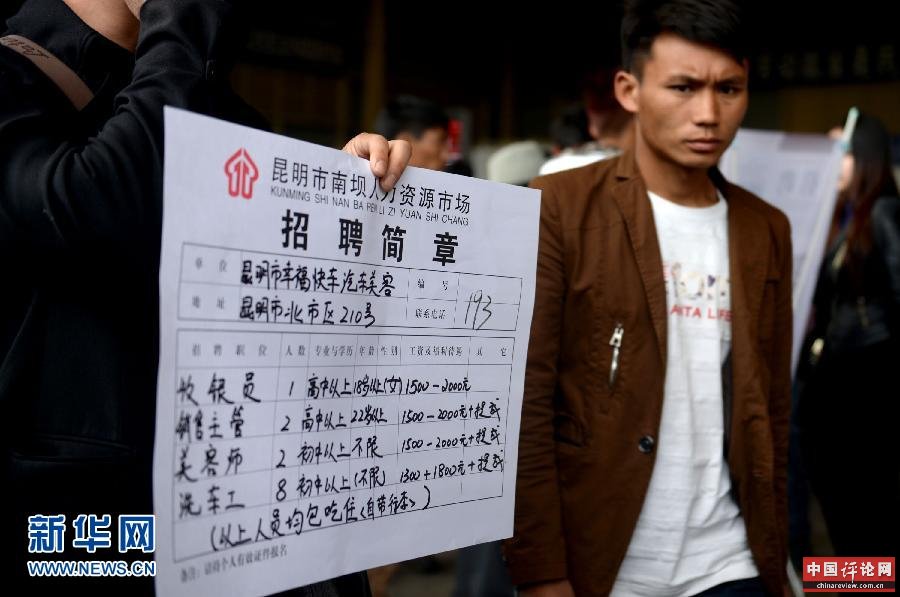 昆明市南坝人力资源市场
KUNMING SHI NAN BA REN LI ZI YUAN SHI CHANG
招聘简章
单位 昆明市幸福快车汽车美容 编号 193
地址 昆明市北市区210号 联系电话
招聘职位 人数 专业与学历 年龄 性别 工资及福利待遇 其它
收银员 1 高中以上 18岁以上(女) 1500-2000元
销售主管 2 高中以上 22岁以上 1500-2000元+提成
美容师 2 初中以上 不限 1500-2000元+提成
洗车工 8 初中以上(不限) 1300+1800元+提成
(以上人员均包吃住<自带行李>)
备注:请持个人有效证件报名
ANTA LIFE
新华网
WWW.NEWS.CN
中国评论网
chinareview.com.cn